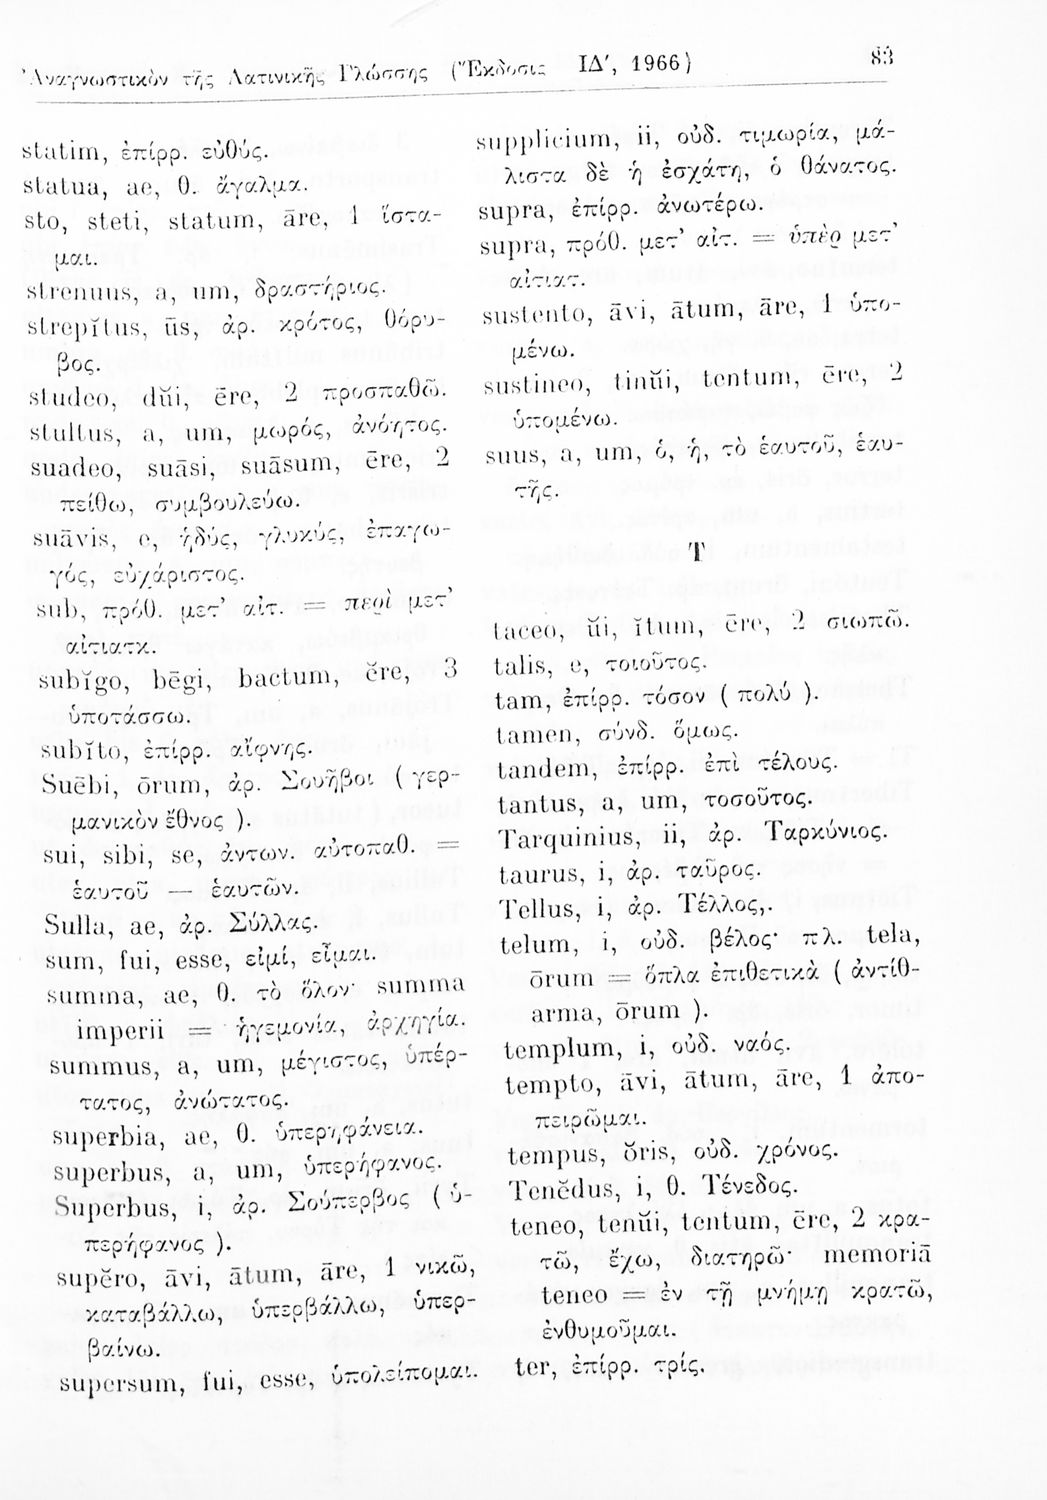 Ἀναγνωστικὸν τῆς Λατινικῆς Γλώσσης (Ἔκδοσις ΙΔ', 1966) 83
statim, ἐπίρρ. εὐθύς.
statua, ae, θ. ἄγαλμα.
sto, steti, statum, āre, 1 ἵστα-
μαι.
strenuus, a, um, δραστήριος.
strepĭtus, ūs, ἀρ. κρότος, θόρυ-
βος.
studeo, dŭi, ēre, 2 προσπαθῶ.
stultus, a, um, μωρός, ἀνόητος.
suadeo, suāsi, suāsum, ēre, 2
πείθω, συμβουλεύω.
suāvis, e, ἡδύς, γλυκύς, ἐπαγω-
γός, εὐχάριστος.
sub, πρόθ. μετ' αἰτ. = περὶ μετ'
αἰτιατκ.
subĭgo, bēgi, bactum, ĕre, 3
ὑποτάσσω.
subĭto, ἐπίρρ. αἴφνης.
Suēbi, ōrum, ἀρ. Σουῆβοι ( γερ-
μανικὸν ἔθνος ).
sui, sibi, se, ἀντων. αὐτοπαθ. =
ἑαυτοῦ — ἑαυτῶν.
Sulla, ae, ἀρ. Σύλλας.
sum, fui, esse, εἰμί, εἶμαι.
summa, ae, θ. τὸ ὅλον· summa
imperii = ἡγεμονία, ἀρχηγία.
summus, a, um, μέγιστος, ὑπέρ-
τατος, ἀνώτατος.
superbia, ae, θ. ὑπερηφάνεια.
superbus, a, um, ὑπερήφανος.
Superbus, i, ἀρ. Σούπερβος ( ὑ-
περήφανος ).
supĕro, āvi, ātum, āre, 1 νικῶ,
καταβάλλω, ὑπερβάλλω, ὑπερ-
βαίνω.
supersum, fui, esse, ὑπολείπομαι.
supplicium, ii, οὐδ. τιμωρία, μά-
λιστα δὲ ἡ ἐσχάτη, ὁ θάνατος.
supra, ἐπίρρ. ἀνωτέρω.
supra, πρόθ. μετ' αἰτ. = ὑπὲρ μετ'
αἰτιατ.
sustento, āvi, ātum, āre, 1 ὑπο-
μένω.
sustineo, tinŭi, tentum, ēre, 2
ὑπομένω.
suus, a, um, ὁ, ἡ, τὸ ἑαυτοῦ, ἑαυ-
τῆς.
T
taceo, ŭi, ĭtum, ēre, 2 σιωπῶ.
talis, e, τοιοῦτος.
tam, ἐπίρρ. τόσον ( πολύ ).
tamen, σύνδ. ὅμως.
tandem, ἐπίρρ. ἐπὶ τέλους.
tantus, a, um, τοσοῦτος.
Tarquinius, ii, ἀρ. Ταρκύνιος.
taurus, i, ἀρ. ταῦρος.
Tellus, i, ἀρ. Τέλλος,.
telum, i, οὐδ. βέλος· πλ. tela,
ōrum = ὅπλα ἐπιθετικὰ ( ἀντίθ-
arma, ōrum ).
templum, i, οὐδ. ναός.
tempto, āvi, ātum, āre, 1 ἀπο-
πειρῶμαι.
tempus, ŏris, οὐδ. χρόνος.
Tenĕdus, i, θ. Τένεδος.
teneo, tenŭi, tentum, ēre, 2 κρα-
τῶ, ἔχω, διατηρῶ· memoriā
teneo = ἐν τῇ μνήμῃ κρατῶ,
ἐνθυμοῦμαι.
ter, ἐπίρρ. τρίς.